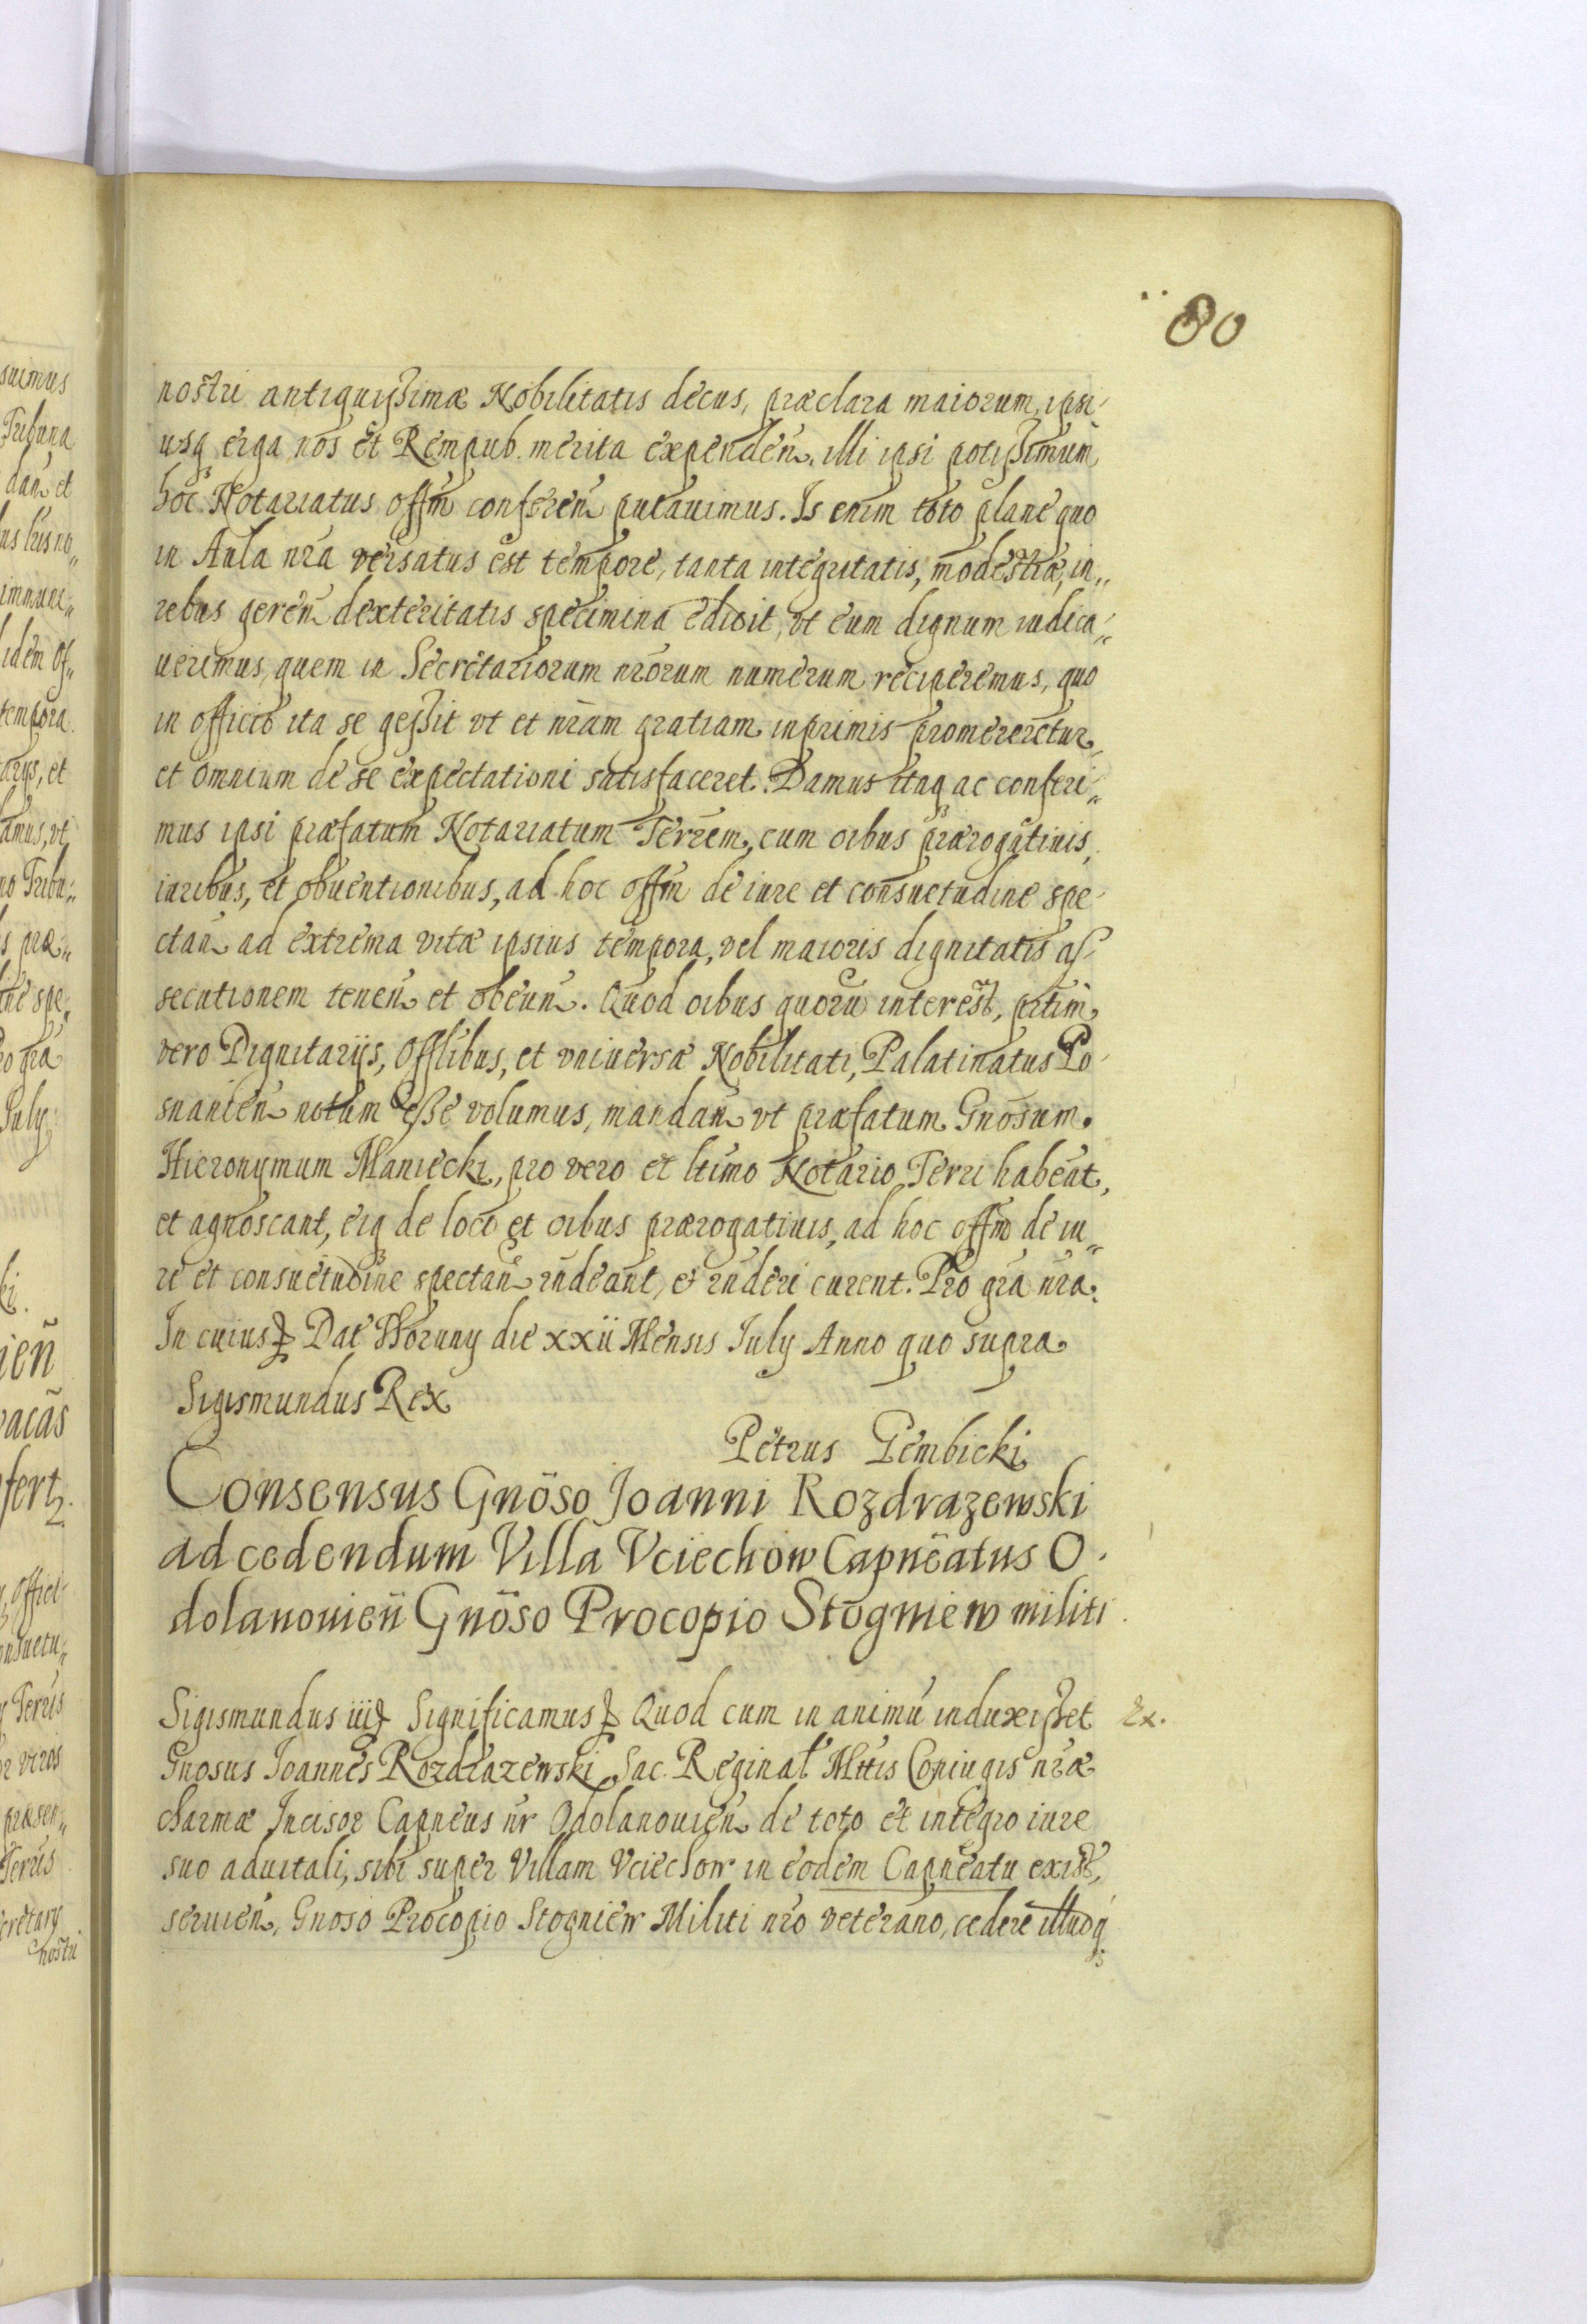 80
nostri antiquissimæ Nobilitatis decus, præclara maiorum, ipsi-
usq erga nos et Rempub. merita expendeñ. illi ipsi potissimum
hoc Notariatus offm̃ confereñ putauimus. Is enim toto plane quo
in Aula nr̃a versatus est tempore, tanta integritatis, modestiæ, in„
rebus gereñ dexteritatis specimina edidit, vt eum dignum iudica„
uerimus, quem in Secretariorum nr̃orum numerum reciperemus, quo
in officio ita se gessit vt et nr̃am gratiam inprimis promereretur,
et omnium de se expectationi satisfaceret. Damus itaq ac conferi„
mus ipsi præfatum Notariatum Terrem, cum oĩbus prærogatiuis,
iuribus, et obuentionibus, ad hoc offm̃ de iure et consuetudine spe-
ctañ ad extrema vitæ ipsius tempora, vel maioris dignitatis as-
secutionem teneñ et obeuñ. Quod oĩbus quorũ interest, prtim
vero Dignitarijs, Offlibus, et vniuersæ Nobilitati, Palatinatus Po-
snanieñ notum esse volumus, mandañ vt præfatum Gnõsum
Hieronymum Maniecki, pro vero et ltimo Notario Terri habeat,
et agnoscant, eiq de loco et oĩbus prærogatiuis, ad hoc offm̃ de iu„
re et consuetudine spectañ rñdeant, et rñderi curent. Pro gr̃a nr̃a.
In cuius Dat Woruny die xxii Mensis July Anno quo supra
Sigismundus Rex
Petrus Gembicki
Consensus Gnõso Joanni Rozdrazewski
ad cedendum Villa Vciechow Capnẽatus O-
dolanouieñ Gnõso Procopio Stogniew militi.
Sigismundus iii Significamus Quod cum in animũ induxisset
Ex.
Gnosus Joannes Rozdrazewski Sac. Reginal Mttis Coniugis nr̃æ
charmæ Incisor Capneus nr̃ Odolanouieñ de toto et integro iure
suo aduitali, sibi super Villam Vciechow in eodem Capneatu exist,
seruieñ, Gnoso Procopio Stogniew Militi nr̃o veterano, cedere illudq